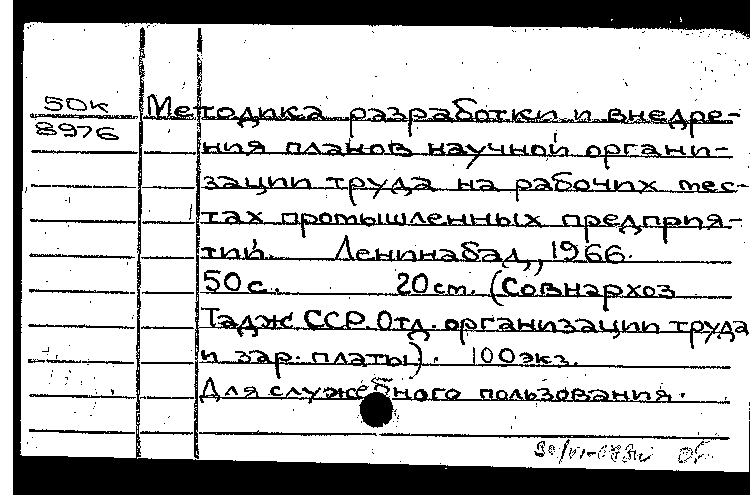 50к
8976
Методика разработки и внедре-
ния планов научной органи-
зации труда на рабочих мес-
тах промышленных предприя-
тий. Ленинабад, 1966.
50 с. 20 см. (Совнархоз
Тадж ССР. Отд. организации труда
и зар. платы). 100 экз.
Для служебного пользования.